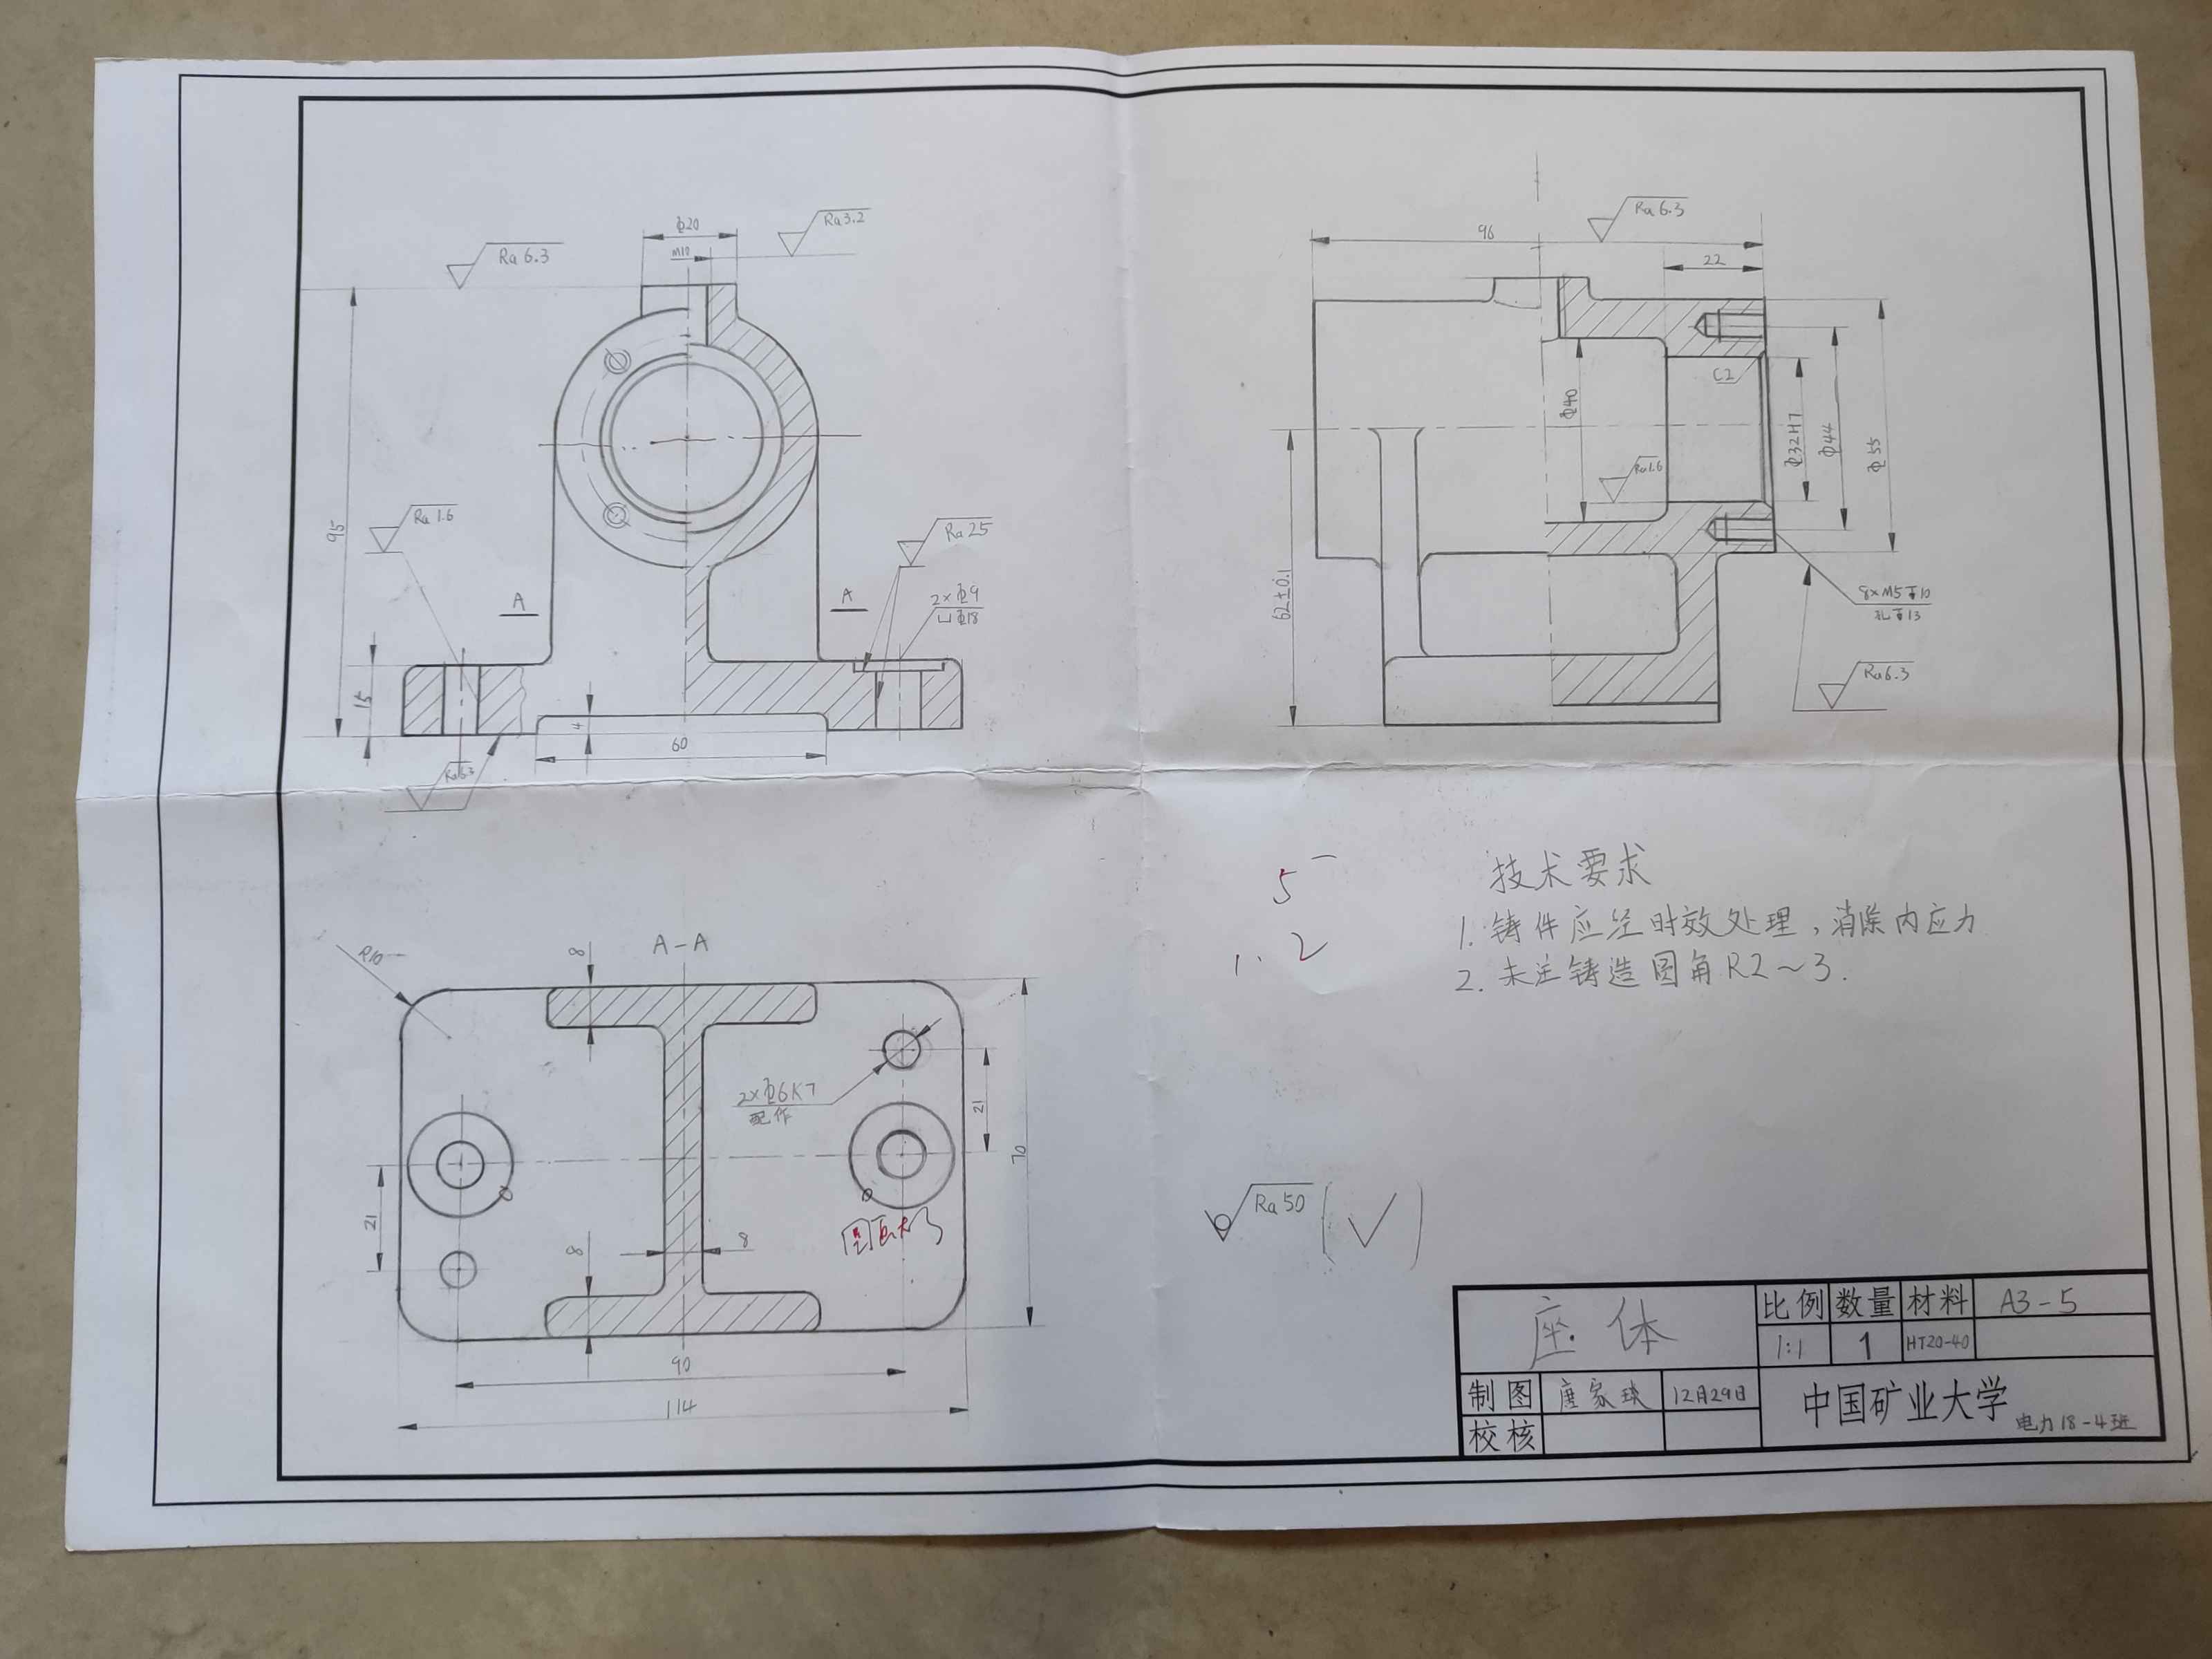 Ra 6.3
Φ20
M10
Ra 3.2
95
15
Ra 1.6
A
A
Ra 25
2×Φ9
⌴Φ18
4
60
Ra6.3
96
Ra 6.3
22
C2
Φ40
Ra1.6
Φ32H7
Φ44
Φ55
62±0.1
8×M5↧10
孔↧13
Ra6.3
A-A
R10
8
2×Φ6K7
配作
21
70
21
8
8
90
114
5
1. 2
技术要求
1. 铸件应经时效处理,消除内应力
2. 未注铸造圆角R2~3.
Ra 50 (✓)
座体
比例 数量 材料 A3-5
1:1 1 HT20-40
制图 唐家琰 12月29日
校核
中国矿业大学
电力18-4班